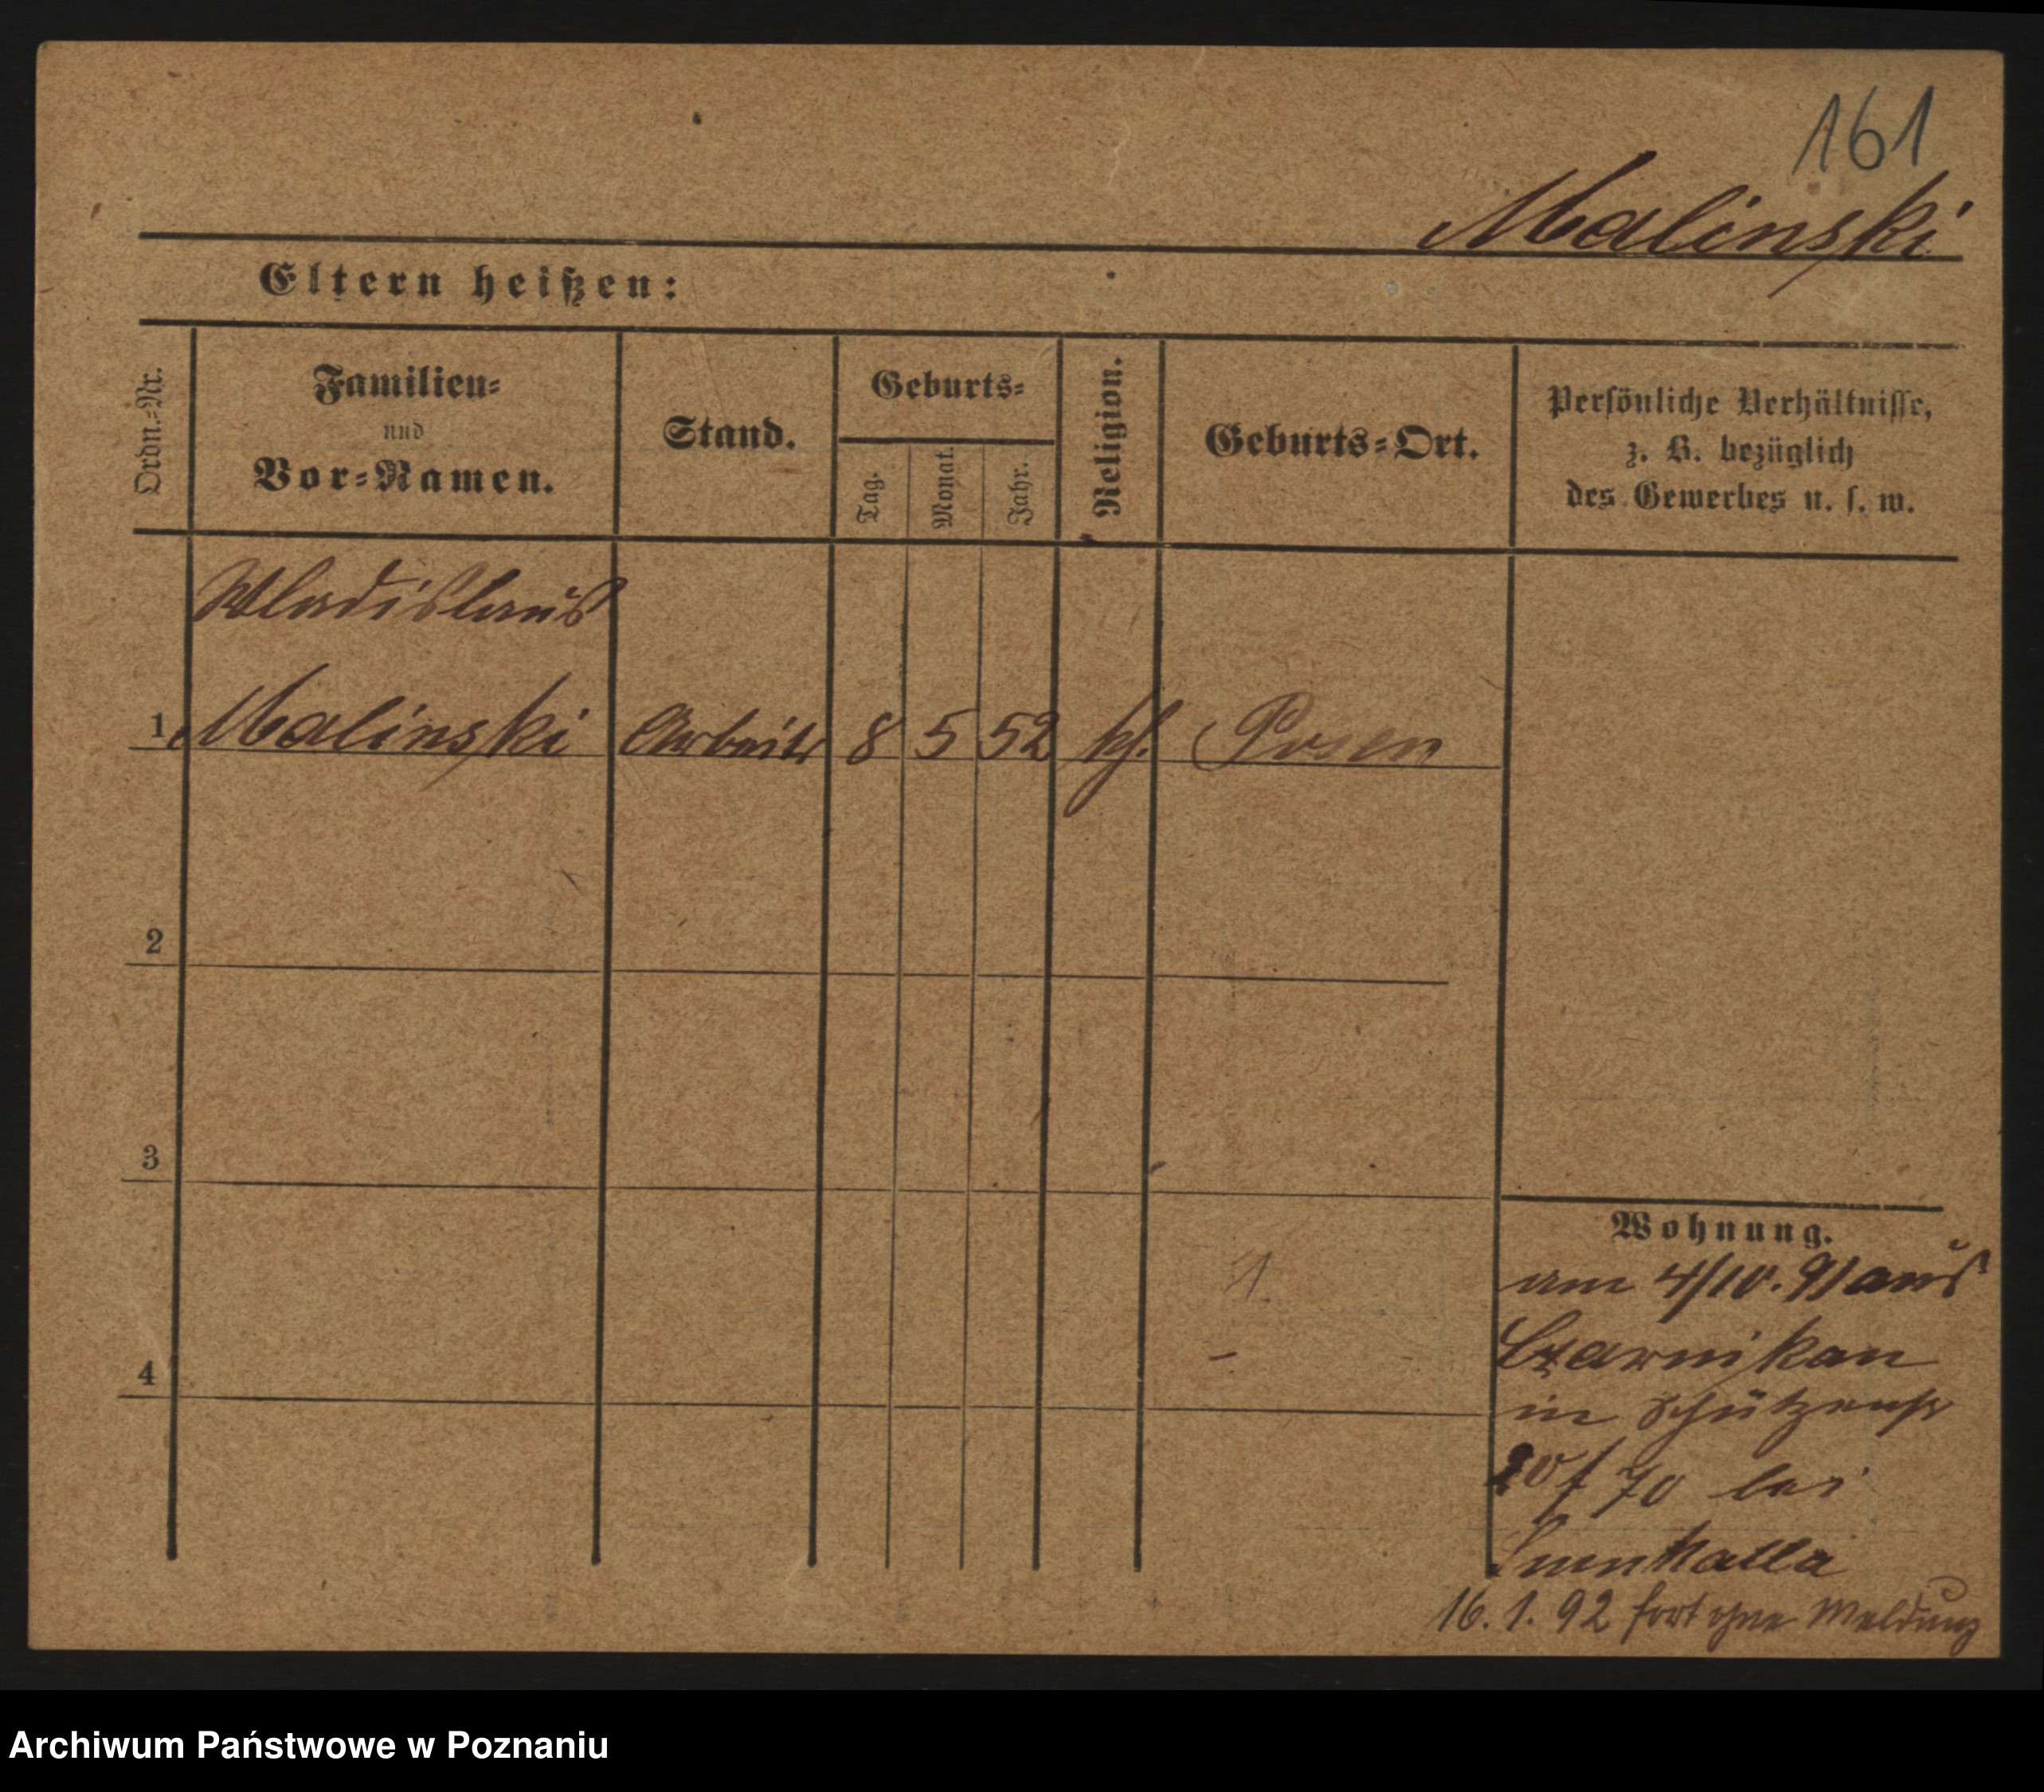 161
Malinski
Eltern heißen:
Ordn.-Nr.
Familien-
und
Vor-Namen.
Stand.
Geburts-
Tag.
Monat.
Jahr.
Religion.
Geburts-Ort.
Persönliche Verhältnisse,
z. B. bezüglich
des Gewerbes u. s. w.
Wladislaus
1 Malinski Arbeiter 8 5 52 kth. Posen
2
3
4
1
Wohnung.
am 4/10. 91 aus
Czarnikau
in Schützenstr
20/ 70 bei
16. 1. 92 fort ohne Meldung
Archiwum Państwowe w Poznaniu